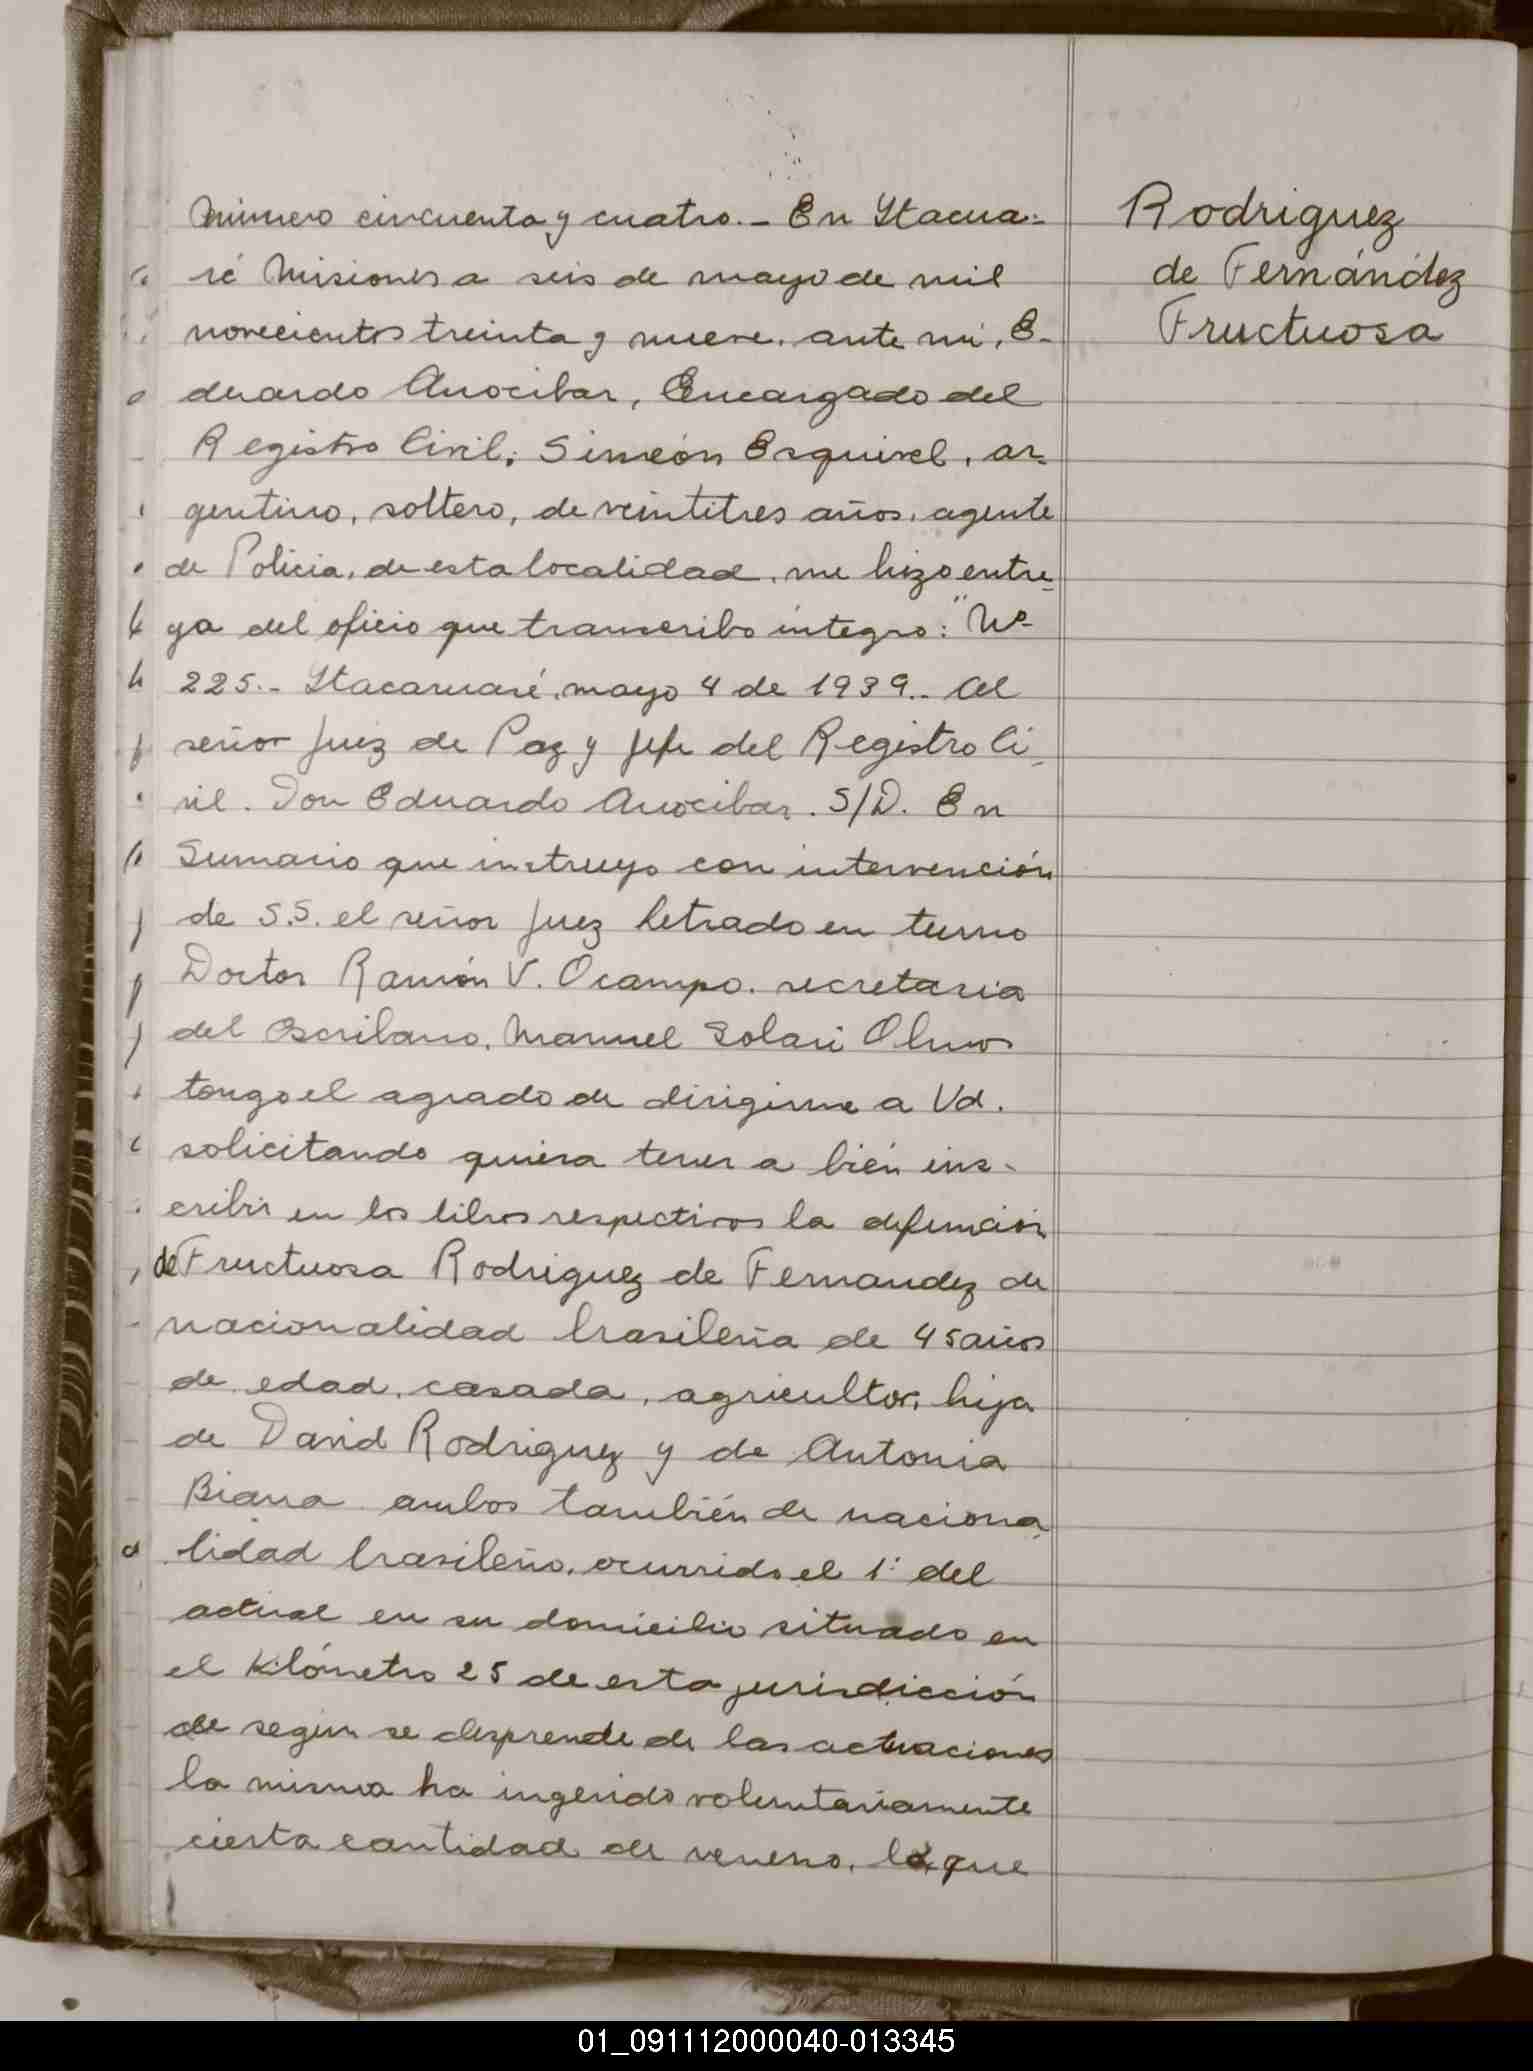 Número cincuenta y cuatro.- En Itacua-
ré Misiones a seis de mayo de mil
novecientos treinta y nueve, ante mi, E-
duardo Arocibar, Encargado del
Registro Civil; Simeón Esquivel, ar-
gentino, soltero, de veintitres años, agente
de Policia, de esta localidad, me hizo entre-
ga del oficio que transcribo integro: "Nº
225.- Itacaruaré, mayo 4 de 1939.- Al
señor Juez de Paz y Jefe del Registro Ci-
vil. Don Eduardo Arocibar. S/D. En
Sumario que instruyo con intervención
de S.S. el señor Juez Letrado en turno
Doctor Ramón V. Ocampo, secretaria
del Escribano, Manuel Solari Olmos
tengo el agrado de dirigirme a Vd.
solicitando quiera tener a bién ins-
cribir en los libros respectivos la defunción
de Fructuosa Rodriguez de Fernandez de
nacionalidad brasileña de 45 años
de edad, casada, agricultor, hija
de David Rodriguez y de Antonia
Biana ambos también de naciona-
lidad brasileño, ocurrido el 1º del
actual en su domicilio situado en
el Kilómetro 25 de esta jurisdicción
de según se desprende de las actuaciones
la misma ha ingerido voluntariamente
cierta cantidad de veneno, lo que
Rodriguez
de Fernández
Fructuosa
01_091112000040-013345